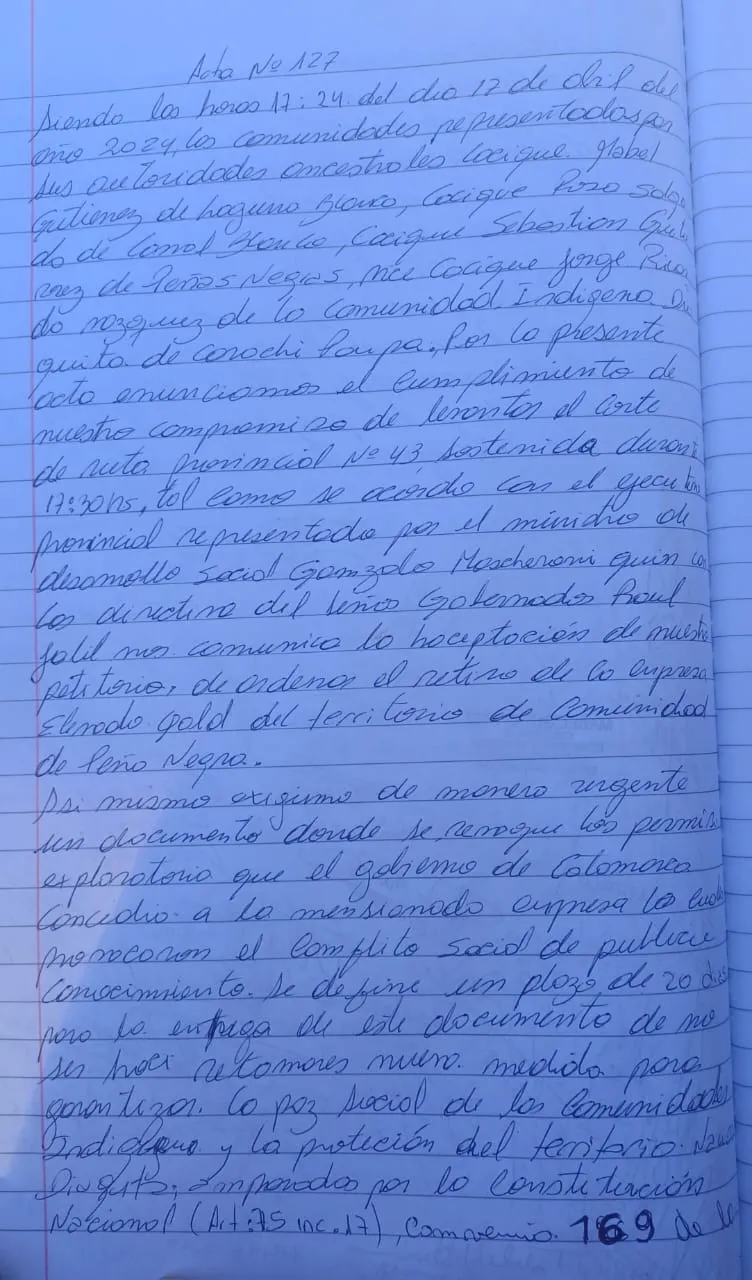 Acta Nº 127
Siendo las horas 17:24. del dia 17 de abril del
año 2024, las comunidades representadas por
sus autoridades ancestrales Cacique.
Gutierrez de Laguna Blanca, Cacique Rozo Salga
do de Corral Blanco, Cacique Sebastian Gutie
rrez de Peñas Negras, vice Cacique Jorge Ricar
do vazquez de la Comunidad Indigena Dia
guita. de Carachi Pampa. Por la presente
acta enunciamos el cumplimiento de
nuestro compromiso de levantar el corte
de ruta provincial Nº 43 sostenida durante
17:30hs, tal como se acordo con el ejecutivo
provincial representado por el ministro de
desarrollo social Gonzalo Mascheroni quien con
las directiva del señor Gobernador Raul
Jalil nos comunica la haceptación de nuestro
petitorio, de ordenar el retiro de la empresa
Elevado gold del territorio de Comunidad
de Peña Negra.
Asi mismo exigimo de manera urgente
un documento donde se revoque los permiso
exploratoria que el gobierno de Catamarca
Concedio. a la mensionada empresa la cual
provocaron el Complito Social de publico
Conocimiento. Se define un plazo de 20 dias
para la entrega de este documento de no
ser haci retomares nueva. medida para
garantizar. la paz social de las Comunidades
Indigena y la proteción del territorio.
Diaguita, amparados por la Constitución
Nacional (Art:75 inc.17), Comvenio. 169 de la